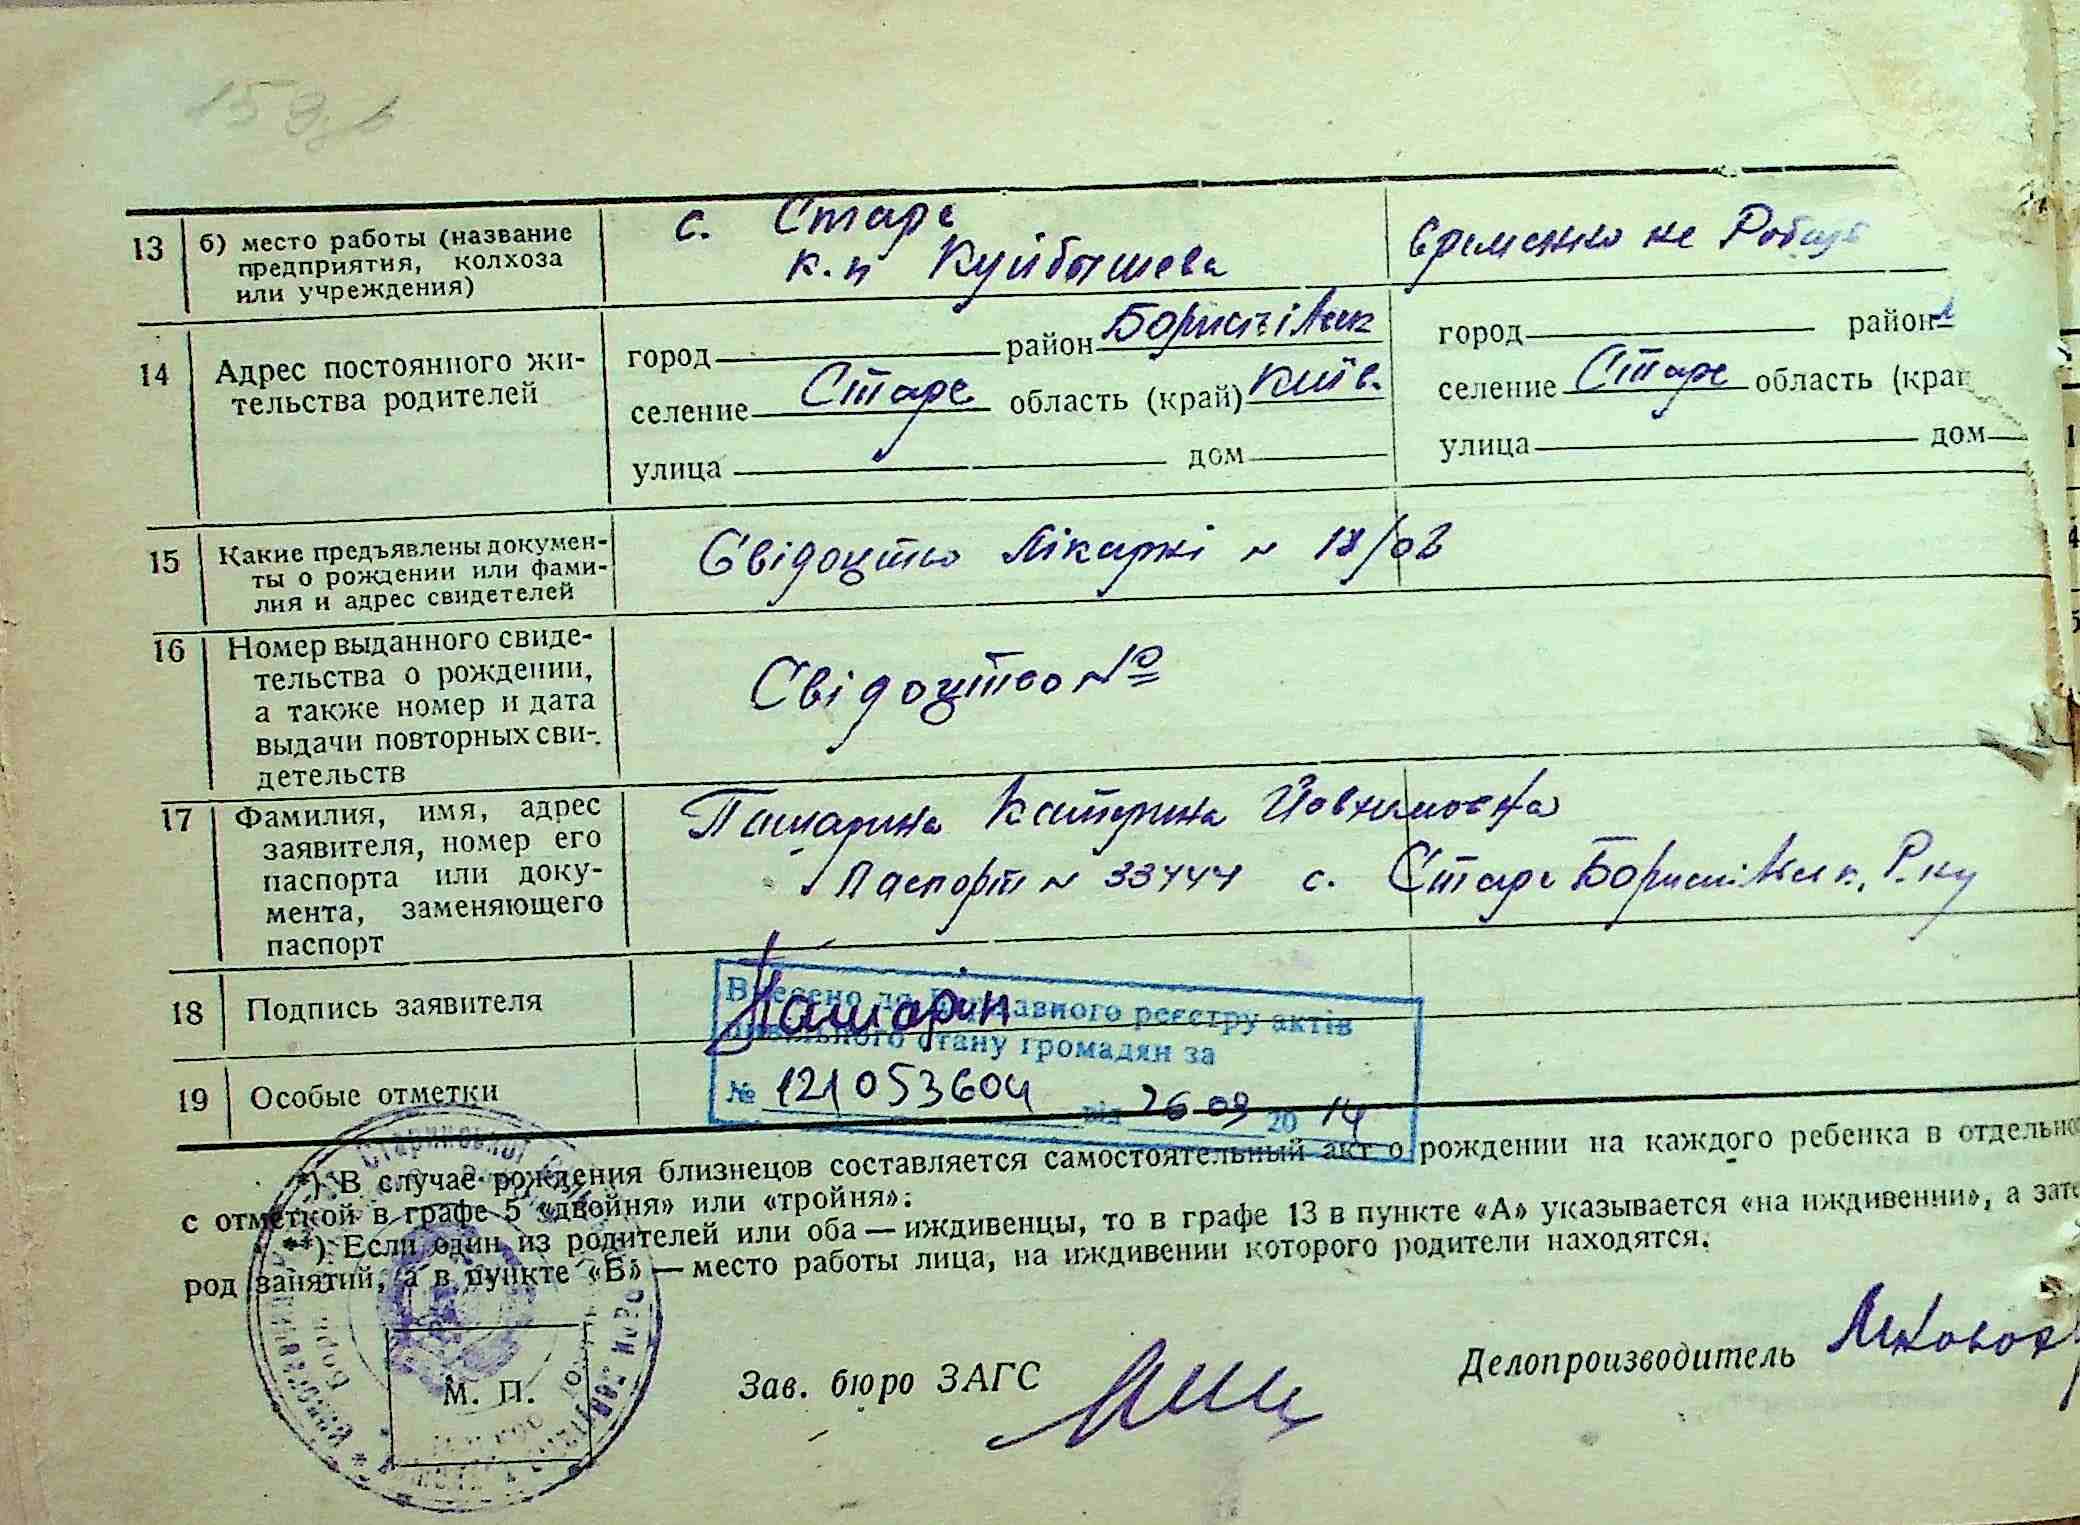 13 б) место работы (название предприятия, колхоза или учреждения)
с. Старе
к.п Куйбышева
временно не
14 Адрес постоянного жи-
тельства родителей
город район Бориспільск
селение Старе область (край) Київ.
улица дом
город район
селение Старе область (кра
улица дом
15 Какие предъявлены докумен-
ты о рождении или фами-
лия и адрес свидетелей
Свідоцтво Лікаркі № 18/02
16 Номер выданного свиде-
тельства о рождении,
а также номер и дата
выдачи повторных сви-
детельств
Свідоцтво №
17 Фамилия, имя, адрес
заявителя, номер его
паспорта или доку-
мента, заменяющего
паспорт
Катерина Йовхимовна
Паспорт № 33444 с. Старе
18 Подпись заявителя
Внесено до Державного реєстру актів
цивільного стану громадян за
№ 121053604 від 26 09 2014
19 Особые отметки
*) В случае рождения близнецов составляется самостоятельный акт о рождении на каждого ребенка в отдельно
с отметкой в графе 5 «двойня» или «тройня».
**) Если один из родителей или оба — иждивенцы, то в графе 13 в пункте «А» указывается «на иждивении», а зате
род занятий, а в пункте «Б» — место работы лица, на иждивении которого родители находятся.
М. П.
Зав. бюро ЗАГС
Делопроизводитель